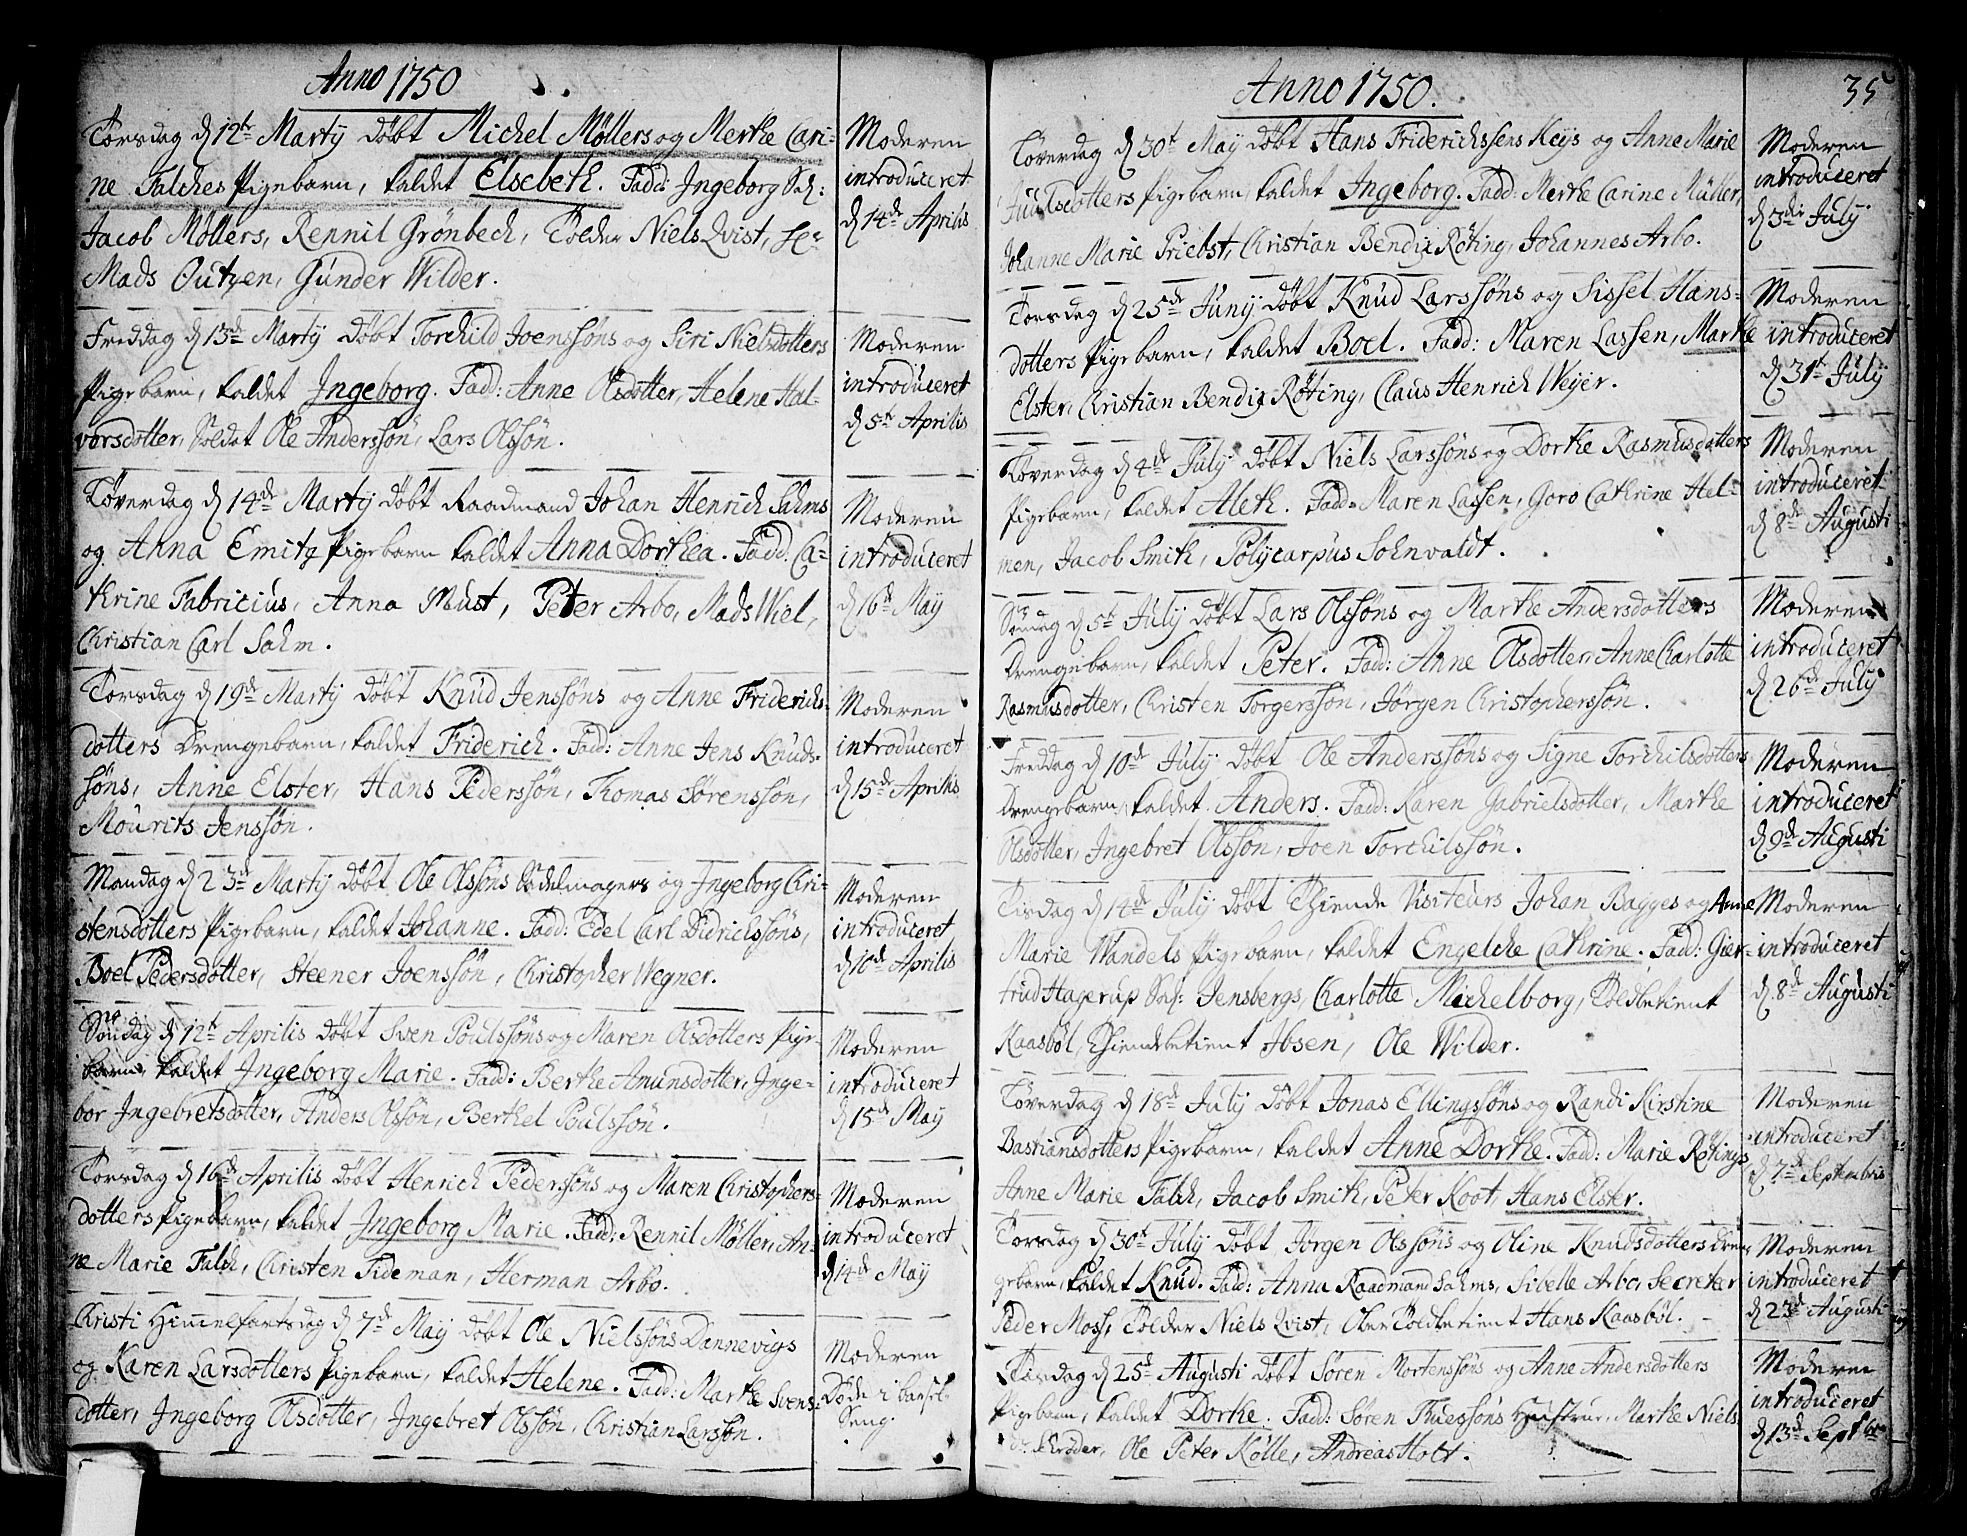 Anno 1750
Torsdag d 12te Martÿ döbt Michel Möllers og Merthe Cari-
ne Falches Pigebarn, kaldet Elsebeth. Fadd: Ingeborg Sal:
Jacob Möllers, Rennil Grönbech, Tolder Niels Qvist, Sr
Mads Outzen, Gunder Wilder.
Moderen
introduceret
d 14de Aprilis
Freddag d 13de Martÿ döbt Torchild Joenssöns og Siri Nielsdotters
Pigebarn, kaldet Ingeborg. Fadd: Anne Olsdotter, Helene Hal-
vorsdotter, Soldat Ole Anderssön, Lars Olssön.
Moderen
introduceret
d 5te Aprilis
Löverdag d 14de Martÿ döbt Raadmand Johan Henrich Sahms
og Anna Emitz Pigebarn kaldet Anna Dorthea. Fadd: Ca-
thrine Fabricius, Anna Must, Peter Arbo, Mads Wiel,
Christian Carl Sahm.
Moderen
introduceret
d 16de Maÿ
Torsdag d 19de Martÿ döbt Knud Jenssöns og Anne Friderichs-
dotters Drengebarn, kaldet Friderich. Fadd: Anne Jens Knuds-
söns, Anne Elster, Hans Pederssön, Thomas Sörenssön,
Mourits Jenssön.
Moderen
introduceret
d 15de Aprilis
Mandag d 23de Martÿ döbt Ole Olssöns Sadelmagers og Ingeborg Chri-
stensdotters Pigebarn, kaldet Johanne. Fadd: Edel Carl Didrichssöns,
Boel Pedersdotter, Steener Joenssön, Christopher Wegner.
Moderen
introduceret
d 10de Aprilis
Söndag d 12te Aprilis döbt Sven Poulssöns og Maren Olsdotters Pige-
barn, kaldet Ingeborg Marie. Fadd: Berthe Amunsdotter, Inge-
bor Ingebretsdotter, Anders Olssön, Berthel Poulssön.
Moderen
introduceret
d 15de Maÿ
Torsdag d 16de Aprilis döbt Henrich Pederssöns og Maren Christophers-
dotters Pigebarn, kaldet Ingeborg Marie. Fadd: Rennil Möller, An-
ne Marie Falch, Christen Fideman, Herman Arbo.
Moderen
introduceret
d 14de Maÿ
Christi Himmelfartsdag d 7de Maÿ döbt Ole Nielssöns Dannevigs
og Karen Larsdotters Pigebarn, kaldet Helene. Fadd: Marthe Svens-
dotter, Ingeborg Olsdotter, Ingebret Olssön, Christian Larssön.
Moderen
Döde i barsel-
Seng.
Anno 1750.
35
Löverdag d 30te Maÿ döbt Hans Friderichssens Keys og Anne Marie
Juulsdotters Pigebarn, kaldet Ingeborg. Fadd: Merthe Carine Müller,
Johanne Marie Priebst, Christian Bendix Röting, Johannes Arbo.
Moderen
introduceret
d 3die Julÿ
Torsdag d 25de Junÿ döbt Knud Larssöns og Sissel Hans-
dotters Pigebarn, kaldet Boel. Fadd: Maren Lassen, Marthe
Elster, Christian Bendix Röting, Claus Henrich Weÿer.
Moderen
introduceret
d 31te Julÿ
Löverdag d 4de Julÿ döbt Niels Larssöns og Dorthe Rasmusdotters
Pigebarn, kaldet Aleth. Fadd: Maren Lassen, Goro Cathrine Hel-
men, Jacob Smith, Polycarpus Sohnvaldt.
Moderen
introduceret
d 8de Augusti
Söndag d 5te Julÿ döbt Lars Olssöns og Marthe Andersdotters
Drengebarn, kaldet Peter. Fadd: Anne Olsdotter, Anne Charlotte
Rasmusdotter, Christen Torgerssön, Jörgen Christopherssön.
Moderen
introduceret
d 26de Julÿ
Freddag d 10de Julÿ döbt Ole Anderssöns og Signe Torchilsdotters
Drengebarn, kaldet Anders. Fadd: Karen Gabrielsdotter, Marthe
Olsdotter, Ingebret Olssön, Joen Torchilssön.
Moderen
introduceret
d 9de Augusti
Tirsdag d 14de Julÿ döbt Thiende Visiteurs Johan Bagges og Anne
Marie Wandels Pigebarn, kaldet Engelche Cathrine. Fadd: Gier-
trud Hagerup Sal: Jensbergs, Charlotte Michelborg, Toldbetient
Kaasböl, Thiendebetient Ibsen, Ole Wilder.
Moderen
introduceret
d 8de Augusti
Löverdag d 18de Julÿ döbt Jonas Ellingssöns og Randi Kirstine
Bastiansdotters Pigebarn, kaldet Anne Dorthe. Fadd: Marie Rötings
Anne Marie Falch, Jacob Smith, Peter Koot, Hans Elster.
Moderen
introduceret
d 7de Septembris
Torsdag d 30te Julÿ döbt Jörgen Olssöns og Oline Knudsdotters Dren-
gebarn, kaldet Knud. Fadd: Anna Raadmand Sahms, Sibelle Arbo, Secreter
Peder Moss, Tolder Niels Qvist, Over Toldbetient Hans Kaasböl.
Moderen
introduceret
d 23de Augusti
Tirsdag d 25de Augusti döbt Sören Mortenssöns og Anne Andersdotters
Pigebarn, kaldet Dorthe. Fadd: Sören Thuessöns Hustrue, Marthe Niels
Schröder, Ole Peter Kölle, Andreas Holt.
Moderen
introduceret
d 13de Septbr